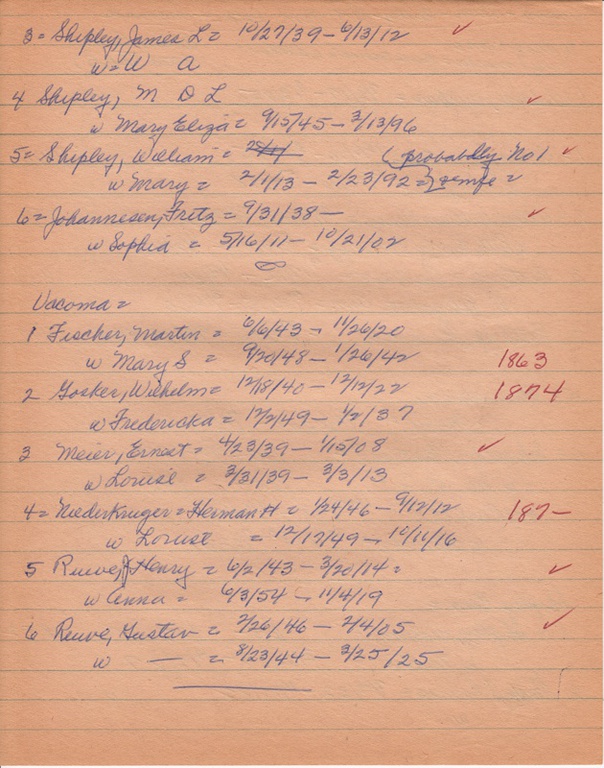 3 = Shipley, James L = 10/27/39 – 6/13/12 ✓
w = W A
4 Shipley, M D L ✓
w Mary Eliza = 9/15/45 – 3/13/96
5 = Shipley, William = (probably No 1 ✓
w Mary = 2/1/13 – 2/23/92 =
6 = Johannesen, Fritz = 9/31/38 – ✓
w Sophia = 5/16/11 – 10/21/02
Vacoma =
1 Fischer, Martin = 6/6/43 – 11/26/20
w Mary S = 9/20/48 – 1/26/42 1863
2 Gosker, Wilhelm = 12/18/40 – 12/12/22 1874
w Fredericka = 12/2/49 – 1/2/37
3 Meier, Ernest = 4/23/39 – 1/15/08 ✓
w Louise = 3/31/39 – 3/3/13
4 = Niederkruger = Herman H = 1/24/46 – 9/12/12 187–
w Louise = 12/17/49 – 10/11/16
5 Ruwe, J Henry = 6/2/43 – 3/20/14 = ✓
w Anna = 6/3/54 – 11/4/19
6 Ruwe, Gustav = 2/26/46 – 2/4/05 ✓
w — = 8/23/44 – 3/25/25